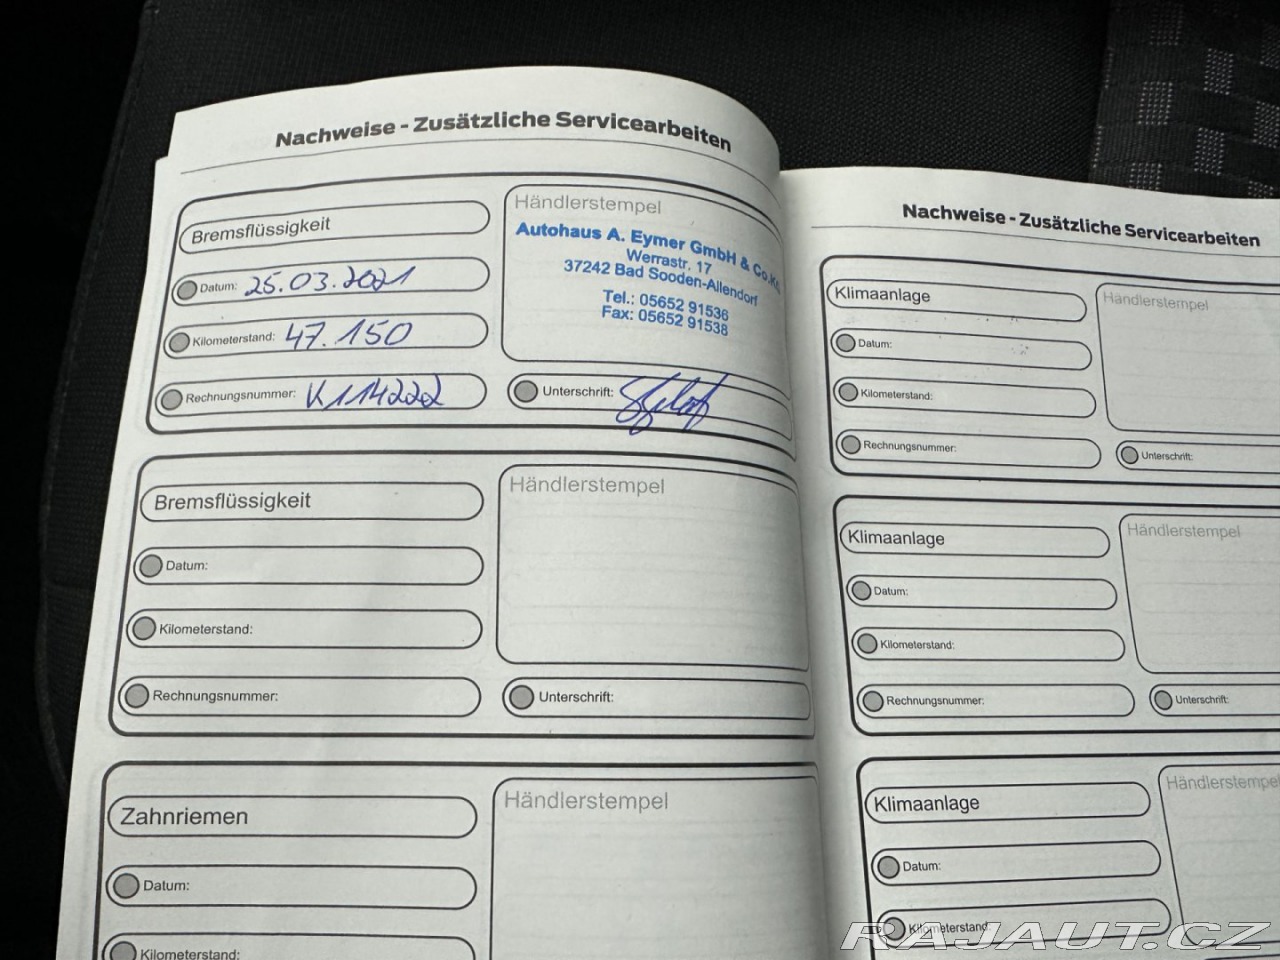 Nachweise - Zusätzliche Servicearbeiten
Bremsflüssigkeit
Datum: 25.03.2021
Kilometerstand: 47.150
Rechnungsnummer: K114222
Händlerstempel
Autohaus A. Eymer GmbH & Co.KG
Werrastr. 17
37242 Bad Sooden-Allendorf
Tel.: 05652 91536
Fax: 05652 91538
Unterschrift:
Bremsflüssigkeit
Datum:
Kilometerstand:
Rechnungsnummer:
Händlerstempel
Unterschrift:
Zahnriemen
Datum:
Kilometerstand:
Händlerstempel
Nachweise - Zusätzliche Servicearbeiten
Klimaanlage
Datum:
Kilometerstand:
Rechnungsnummer:
Händlerstempel
Unterschrift:
Klimaanlage
Datum:
Kilometerstand:
Rechnungsnummer:
Händlerstempel
Unterschrift:
Klimaanlage
Datum:
Kilometerstand:
Händlerstempel
RAJAUT.CZ